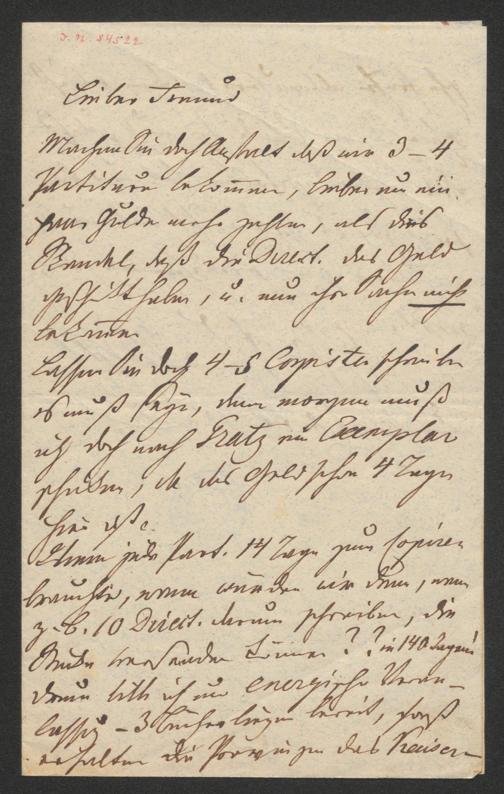 J. N. 84522
Lieber Freund
Machen Sie doch Anstalt daß wir 3–4
Partituren bekommen, lieber nur ein
paar Gulden mehr zahlen, als dieß
Skandal, daß die Direct. das Geld
geschickt haben, u. nun ihre Sache nicht
bekommen
Lassen Sie doch 4–5 Copisten schreiben
es muß seyn, denn morgen muß
ich doch nach Gratz ein Exemplar
schicken, da das Geld schon 4 Tage
hier ist.
Wenn jede Part. 14 Tage zum Copiren
brauchte, wann würden wir denn, wenn
z. B. 10 Direct. darum schreiben, die
Stücke versenden können?? in 140 Tagen!
darum bitte ich um energische Veran-
lassung – 3 Bücher liegen bereit, sonst
erhalten die Provinzen das